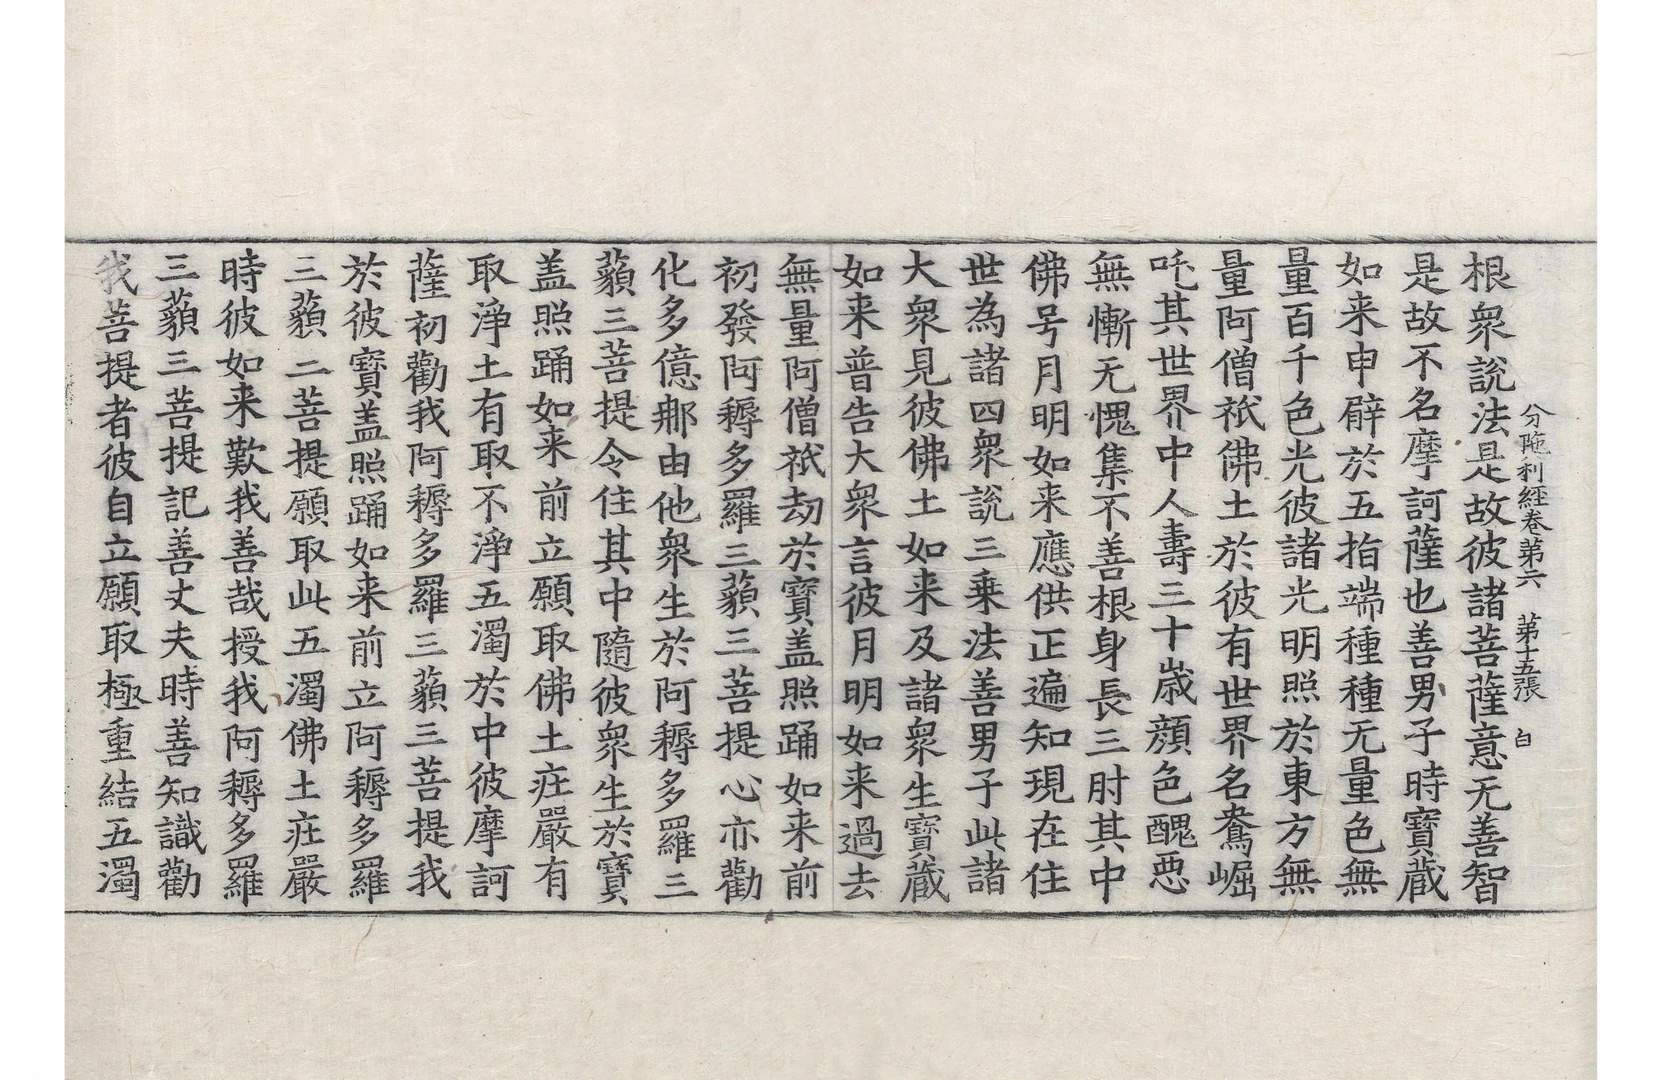 分陁利經卷第六　第十五張　白
根衆說法是故彼諸菩薩意无善智
是故不名摩訶薩也善男子時寶蔵
如来申臂於五指端種種无量色無
量百千色光彼諸光明照於東方無
量阿僧祇佛土於彼有世界名鴦崛
吒其世界中人壽三十歲顔色醜惡
無慚无愧集不善根身長三肘其中
佛号月明如来應供正遍知現在住
世為諸四衆說三乗法善男子此諸
大衆見彼佛土如来及諸衆生寶蔵
如来普告大衆言彼月明如来過去
無量阿僧祇劫於寶盖照踊如来前
初發阿耨多羅三藐三菩提心亦勸
化多億那由他衆生於阿耨多羅三
藐三菩提令住其中隨彼衆生於寶
盖照踊如来前立願取佛土莊嚴有
取淨土有取不淨五濁於中彼摩訶
薩初勸我阿耨多羅三藐三菩提我
於彼寶盖照踊如来前立阿耨多羅
三藐三菩提願取此五濁佛土莊嚴
時彼如来歎我善哉授我阿耨多羅
三藐三菩提記善丈夫時善知識勸
我菩提者彼自立願取極重結五濁